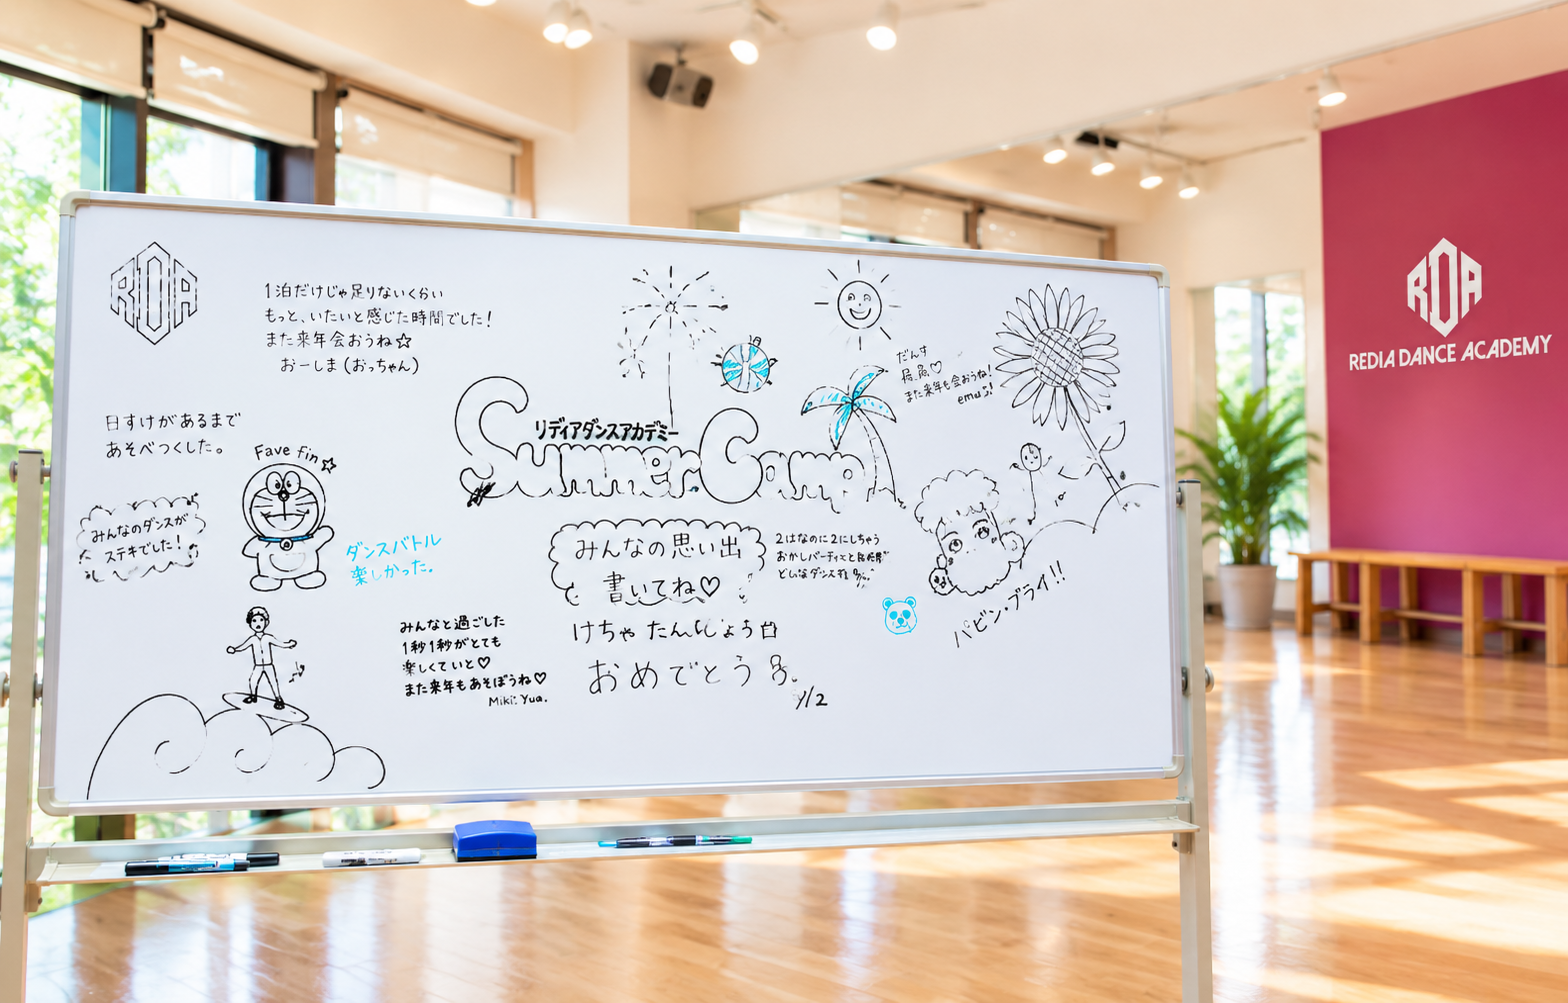 RDA
1泊だけじゃ足りないくらい
もっと、いたいと感じた時間でした!
また来年会おうね☆
おーしま(おっちゃん)
日すけがあるまで
あそべつくした。
Fave fin☆
みんなのダンスが
ステキでした!
ダンスバトル
楽しかった。
みんなと過ごした
1秒1秒がとても
楽しくていと♡
また来年もあそぼうね♡
Miki: Yua.
リディアダンスアカデミー
Summer Camp
みんなの思い出
書いてね♡
けちゃ たんじょう日
おめでとう
2はなのに2にしちゃう
おかしパーティ
ダンス
だんす
最高♡
また来年も会おうね!
パビン・ブライ!!
RDA
REDIA DANCE ACADEMY